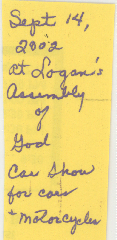 Sept 14,
2002
at Logan's
Assembly
of
God
Car Show
for cars
+ Motorcycles